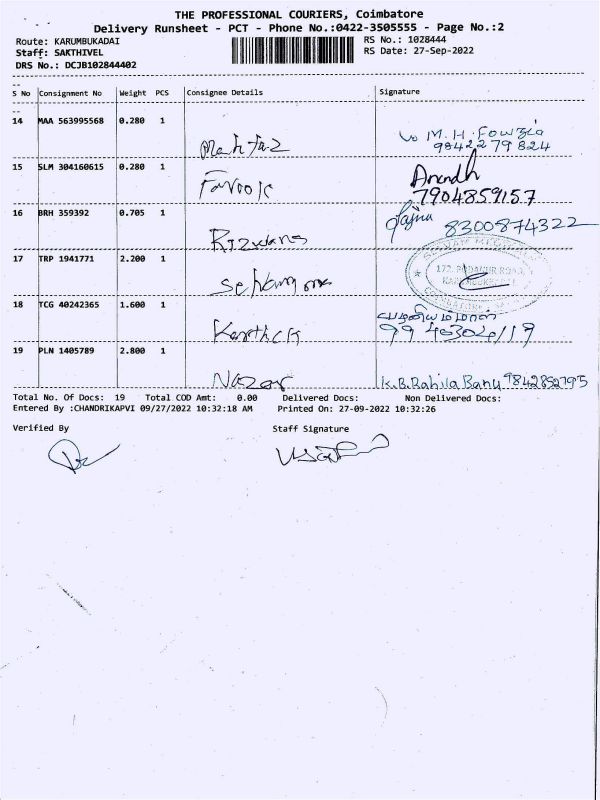 THE PROFESSIONAL COURIERS, Coimbatore
Delivery Runsheet - PCT - Phone No.:0422-3505555 - Page No.:2
Route: KARUMBUKADAI RS No.: 1028444
Staff: SAKTHIVEL RS Date: 27-Sep-2022
DRS No.: DCJB102844402
S No Consignment No Weight PCS Consignee Details Signature
14 MAA 563995568 0.280 1
M.H. Fowzia
9842279824
15 SLM 304160615 0.280 1 Farook Anandh
7904859157
16 BRH 359392 0.705 1 Rizwana 8300874322
17 TRP 1941771 2.200 1
18 TCG 40242365 1.600 1 Karthick
19 PLN 1405789 2.800 1 Nazar K.B.Rahila Banu 9842852795
Total No. Of Docs: 19 Total COD Amt: 0.00 Delivered Docs: Non Delivered Docs:
Entered By :CHANDRIKAPVI 09/27/2022 10:32:18 AM Printed On: 27-09-2022 10:32:26
Verified By Staff Signature